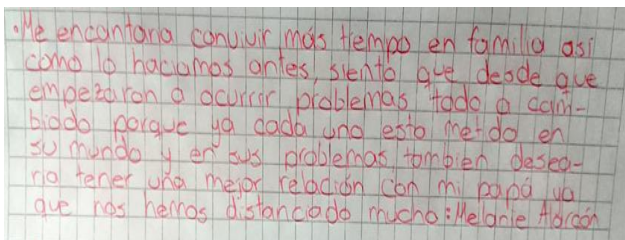 .Me encantaria convivir más tiempo en familia asi
como lo haciamos antes, siento que desde que
empezaron a ocurrir problemas todo a cam-
biado porque ya cada uno esta metido en
su mundo y en sus problemas tambien desea-
ria tener una mejor relación con mi papá ya
que nos hemos distanciado mucho: Melanie